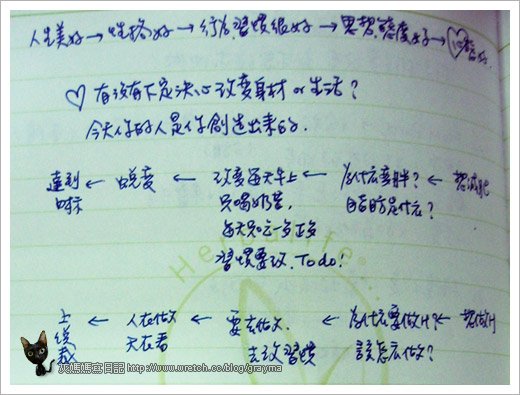 人生美好→性格好→行為習慣很好→思想.態度好→心態好.
♡ 有沒有下定決心改變身材 or 生活?
今天你的人是你創造出來的.
達到目標 ← 蛻變 ← 改變每天早上只喝奶昔,每天只吃一多正多習慣要改.Todo! ← 為什麼變胖?目的是什麼? ← 想減肥
Herbalife
上線教 ← 人在做天在看 ← 要去做.去改習慣 ← 為什麼要做H?該怎麼做? ← 想做H
灰媽媽寫日記 http://www.wretch.cc/blog/grayma